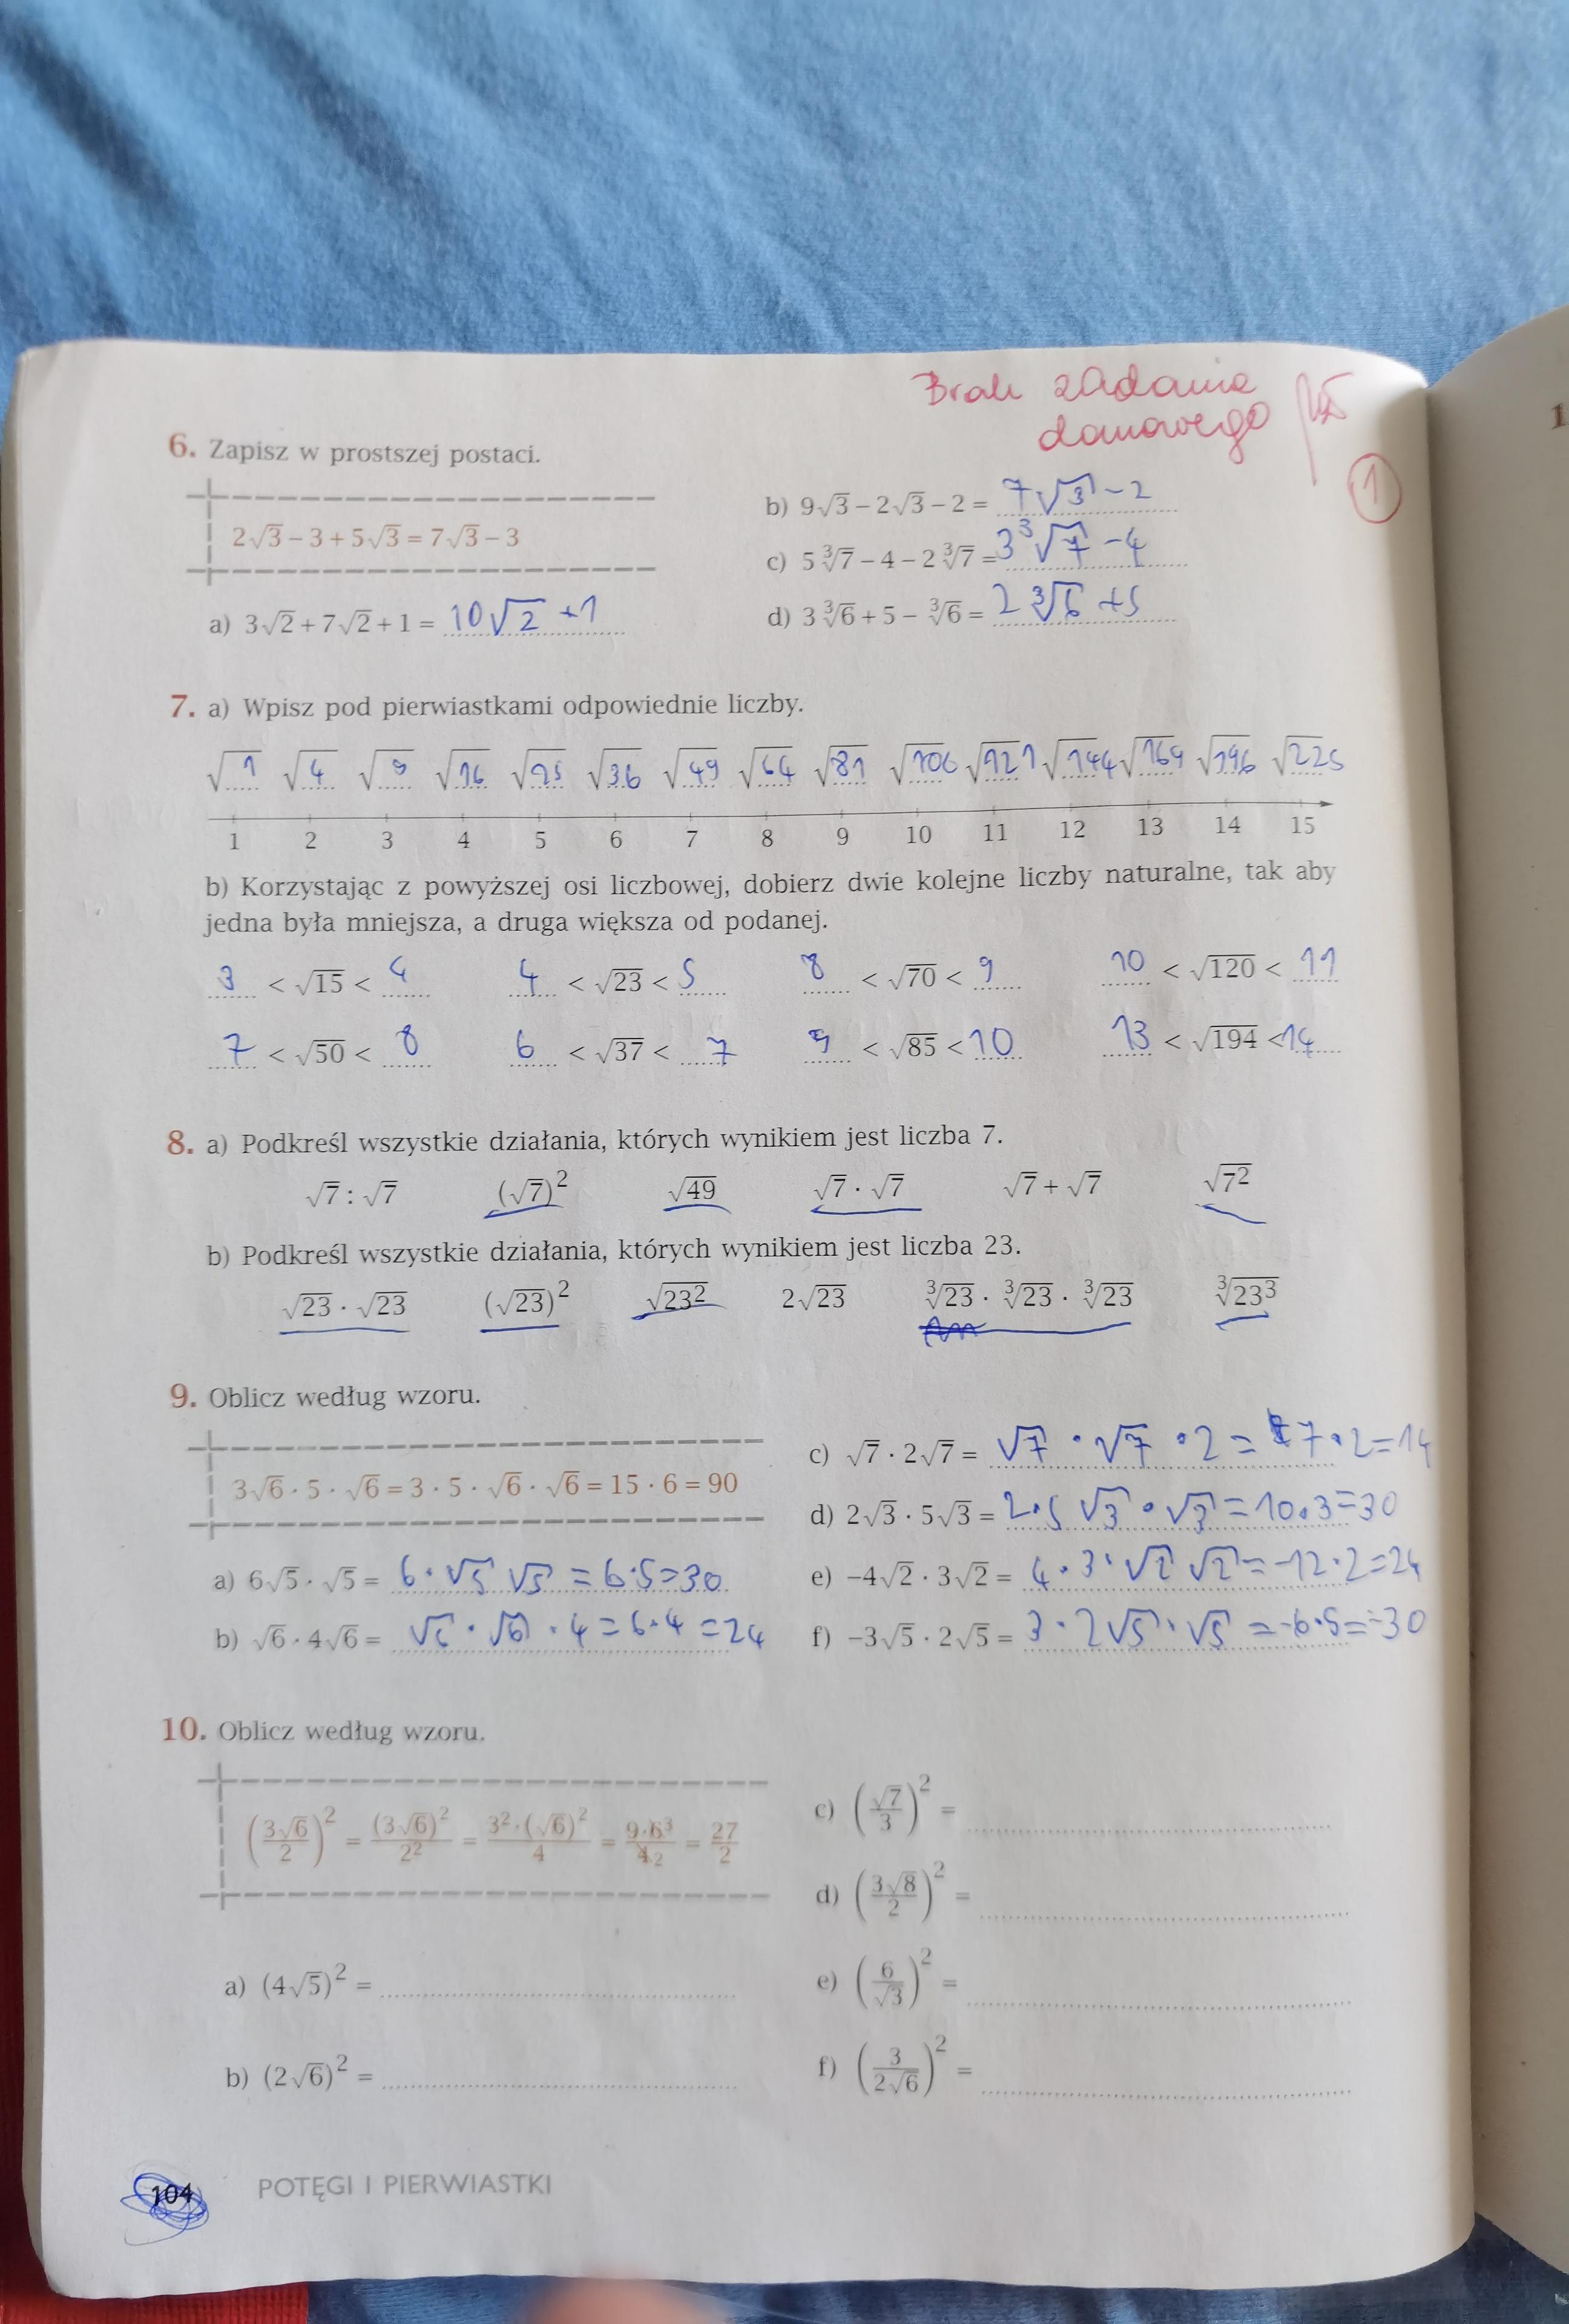 Brak zadania
domowego
1
6. Zapisz w prostszej postaci.
2√3 − 3 + 5√3 = 7√3 − 3
a) 3√2 + 7√2 + 1 = 10√2 +1
b) 9√3 − 2√3 − 2 = 7√3 −2
c) 5∛7 − 4 − 2∛7 = 3∛7 −4
d) 3∛6 + 5 − ∛6 = 2∛6 +5
7. a) Wpisz pod pierwiastkami odpowiednie liczby.
√1 √4 √9 √16 √25 √36 √49 √64 √81 √100 √121 √144 √169 √196 √225
1 2 3 4 5 6 7 8 9 10 11 12 13 14 15
b) Korzystając z powyższej osi liczbowej, dobierz dwie kolejne liczby naturalne, tak aby
jedna była mniejsza, a druga większa od podanej.
3 < √15 < 4 4 < √23 < 5 8 < √70 < 9 10 < √120 < 11
7 < √50 < 8 6 < √37 < 7 9 < √85 < 10 13 < √194 < 14
8. a) Podkreśl wszystkie działania, których wynikiem jest liczba 7.
√7 : √7 (√7)² √49 √7 · √7 √7 + √7 √7²
b) Podkreśl wszystkie działania, których wynikiem jest liczba 23.
√23 · √23 (√23)² √23² 2√23 ∛23 · ∛23 · ∛23 ∛23³
9. Oblicz według wzoru.
3√6 · 5 · √6 = 3 · 5 · √6 · √6 = 15 · 6 = 90
a) 6√5 · √5 = 6·√5 √5 = 6·5=30
b) √6 · 4√6 = √6 · √6 · 4 = 6·4 =24
c) √7 · 2√7 = √7 · √7 · 2 = 7·2=14
d) 2√3 · 5√3 = 2·5 √3 · √3 = 10·3=30
e) −4√2 · 3√2 = 4·3·√2 √2 = −12·2=24
f) −3√5 · 2√5 = 3·2√5·√5 = −6·5=−30
10. Oblicz według wzoru.
(3√6/2)² = (3√6)²/2² = 3²·(√6)²/4 = 9·6³/4₂ = 27/2
a) (4√5)² =
b) (2√6)² =
c) (√7/3)² =
d) (3√8/2)² =
e) (6/√3)² =
f) (3/2√6)² =
104 POTĘGI I PIERWIASTKI